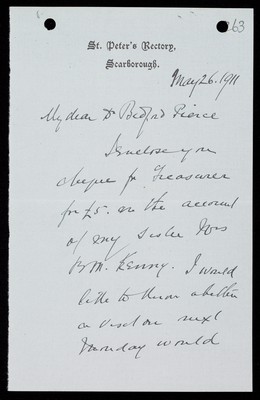 263
St. Peter's Rectory,
Scarborough.
May 26. 1911
My dear Dr Bedford Pierce
I enclose you
cheque for Treasurer
for £5. on the account
of my sister Mrs
B.M. Kenny. I would
like to know whether
a visit on next
Monday would